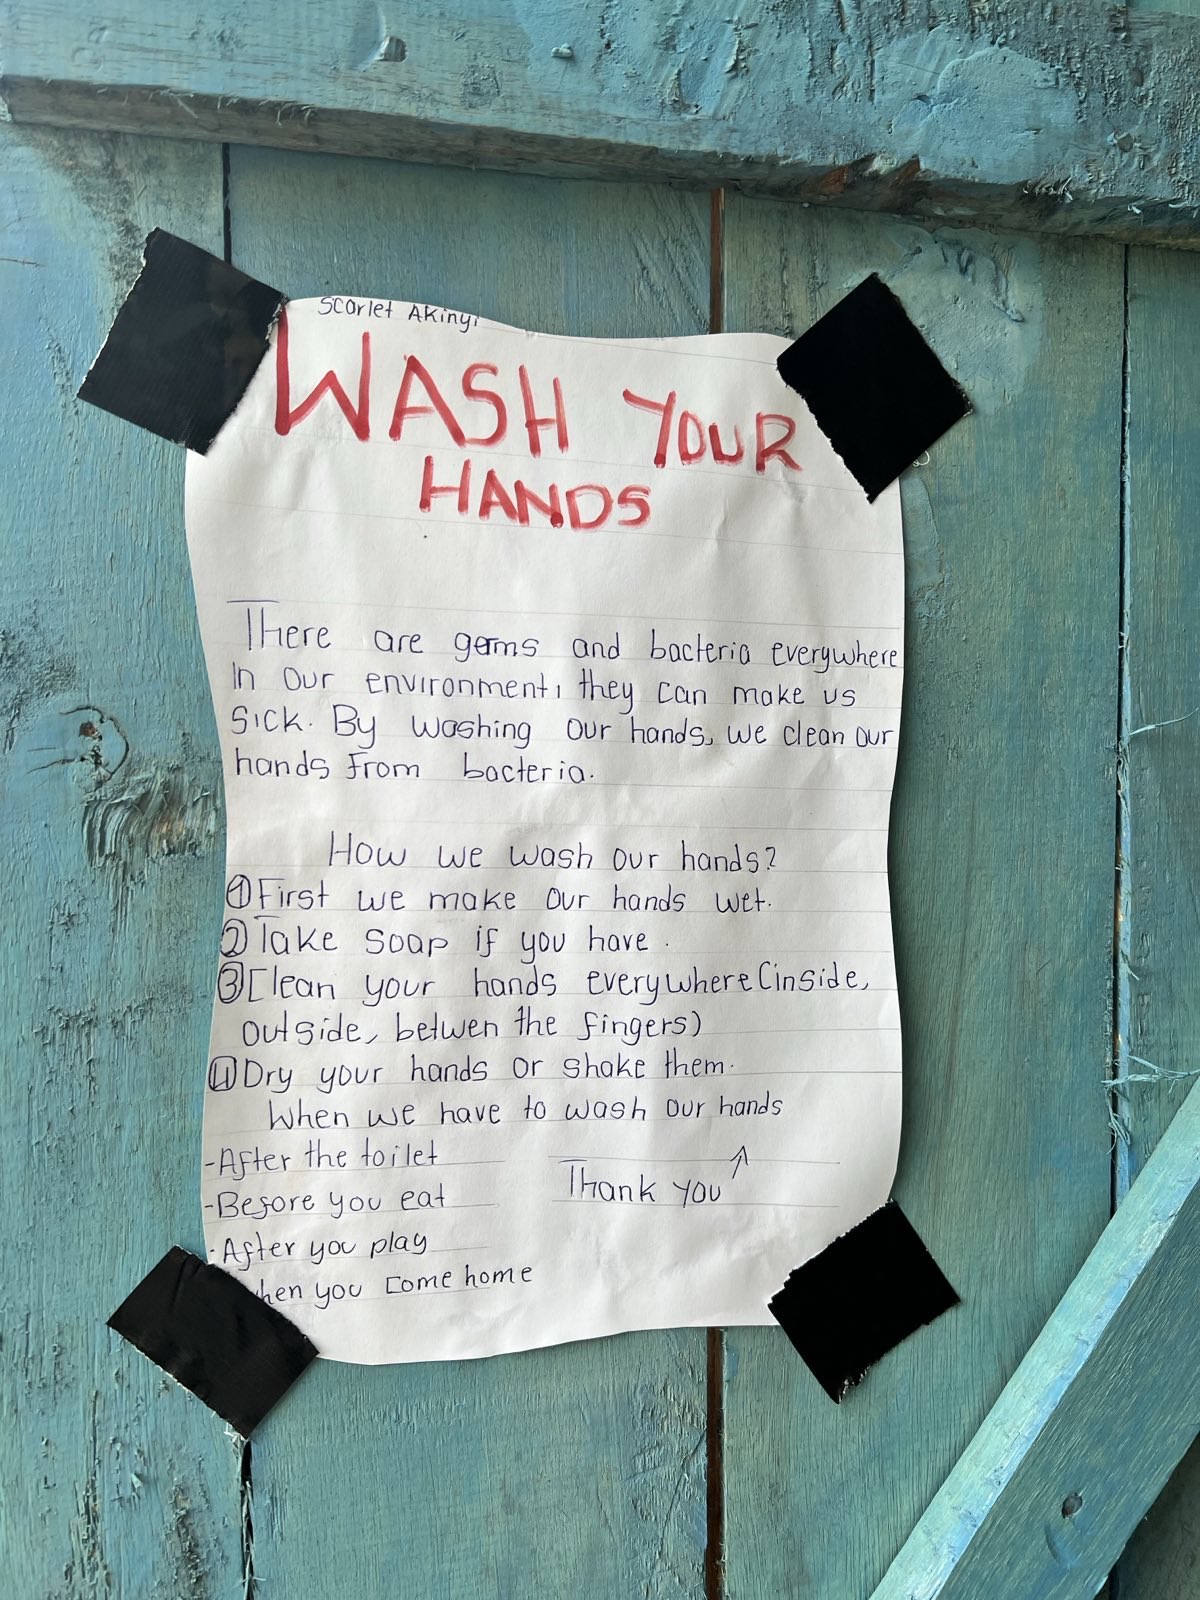 Scarlet Akinyi
WASH YOUR
HANDS
There are germs and bacteria everywhere
in our environment, they can make us
sick. By washing our hands, we clean our
hands from bacteria.
How we wash our hands?
① First we make our hands wet.
② Take soap if you have.
③ Clean your hands everywhere (inside,
outside, betwen the fingers)
④ Dry your hands or shake them.
When we have to wash our hands
- After the toilet
- Before you eat
- After you play
when you come home
Thank you ↑